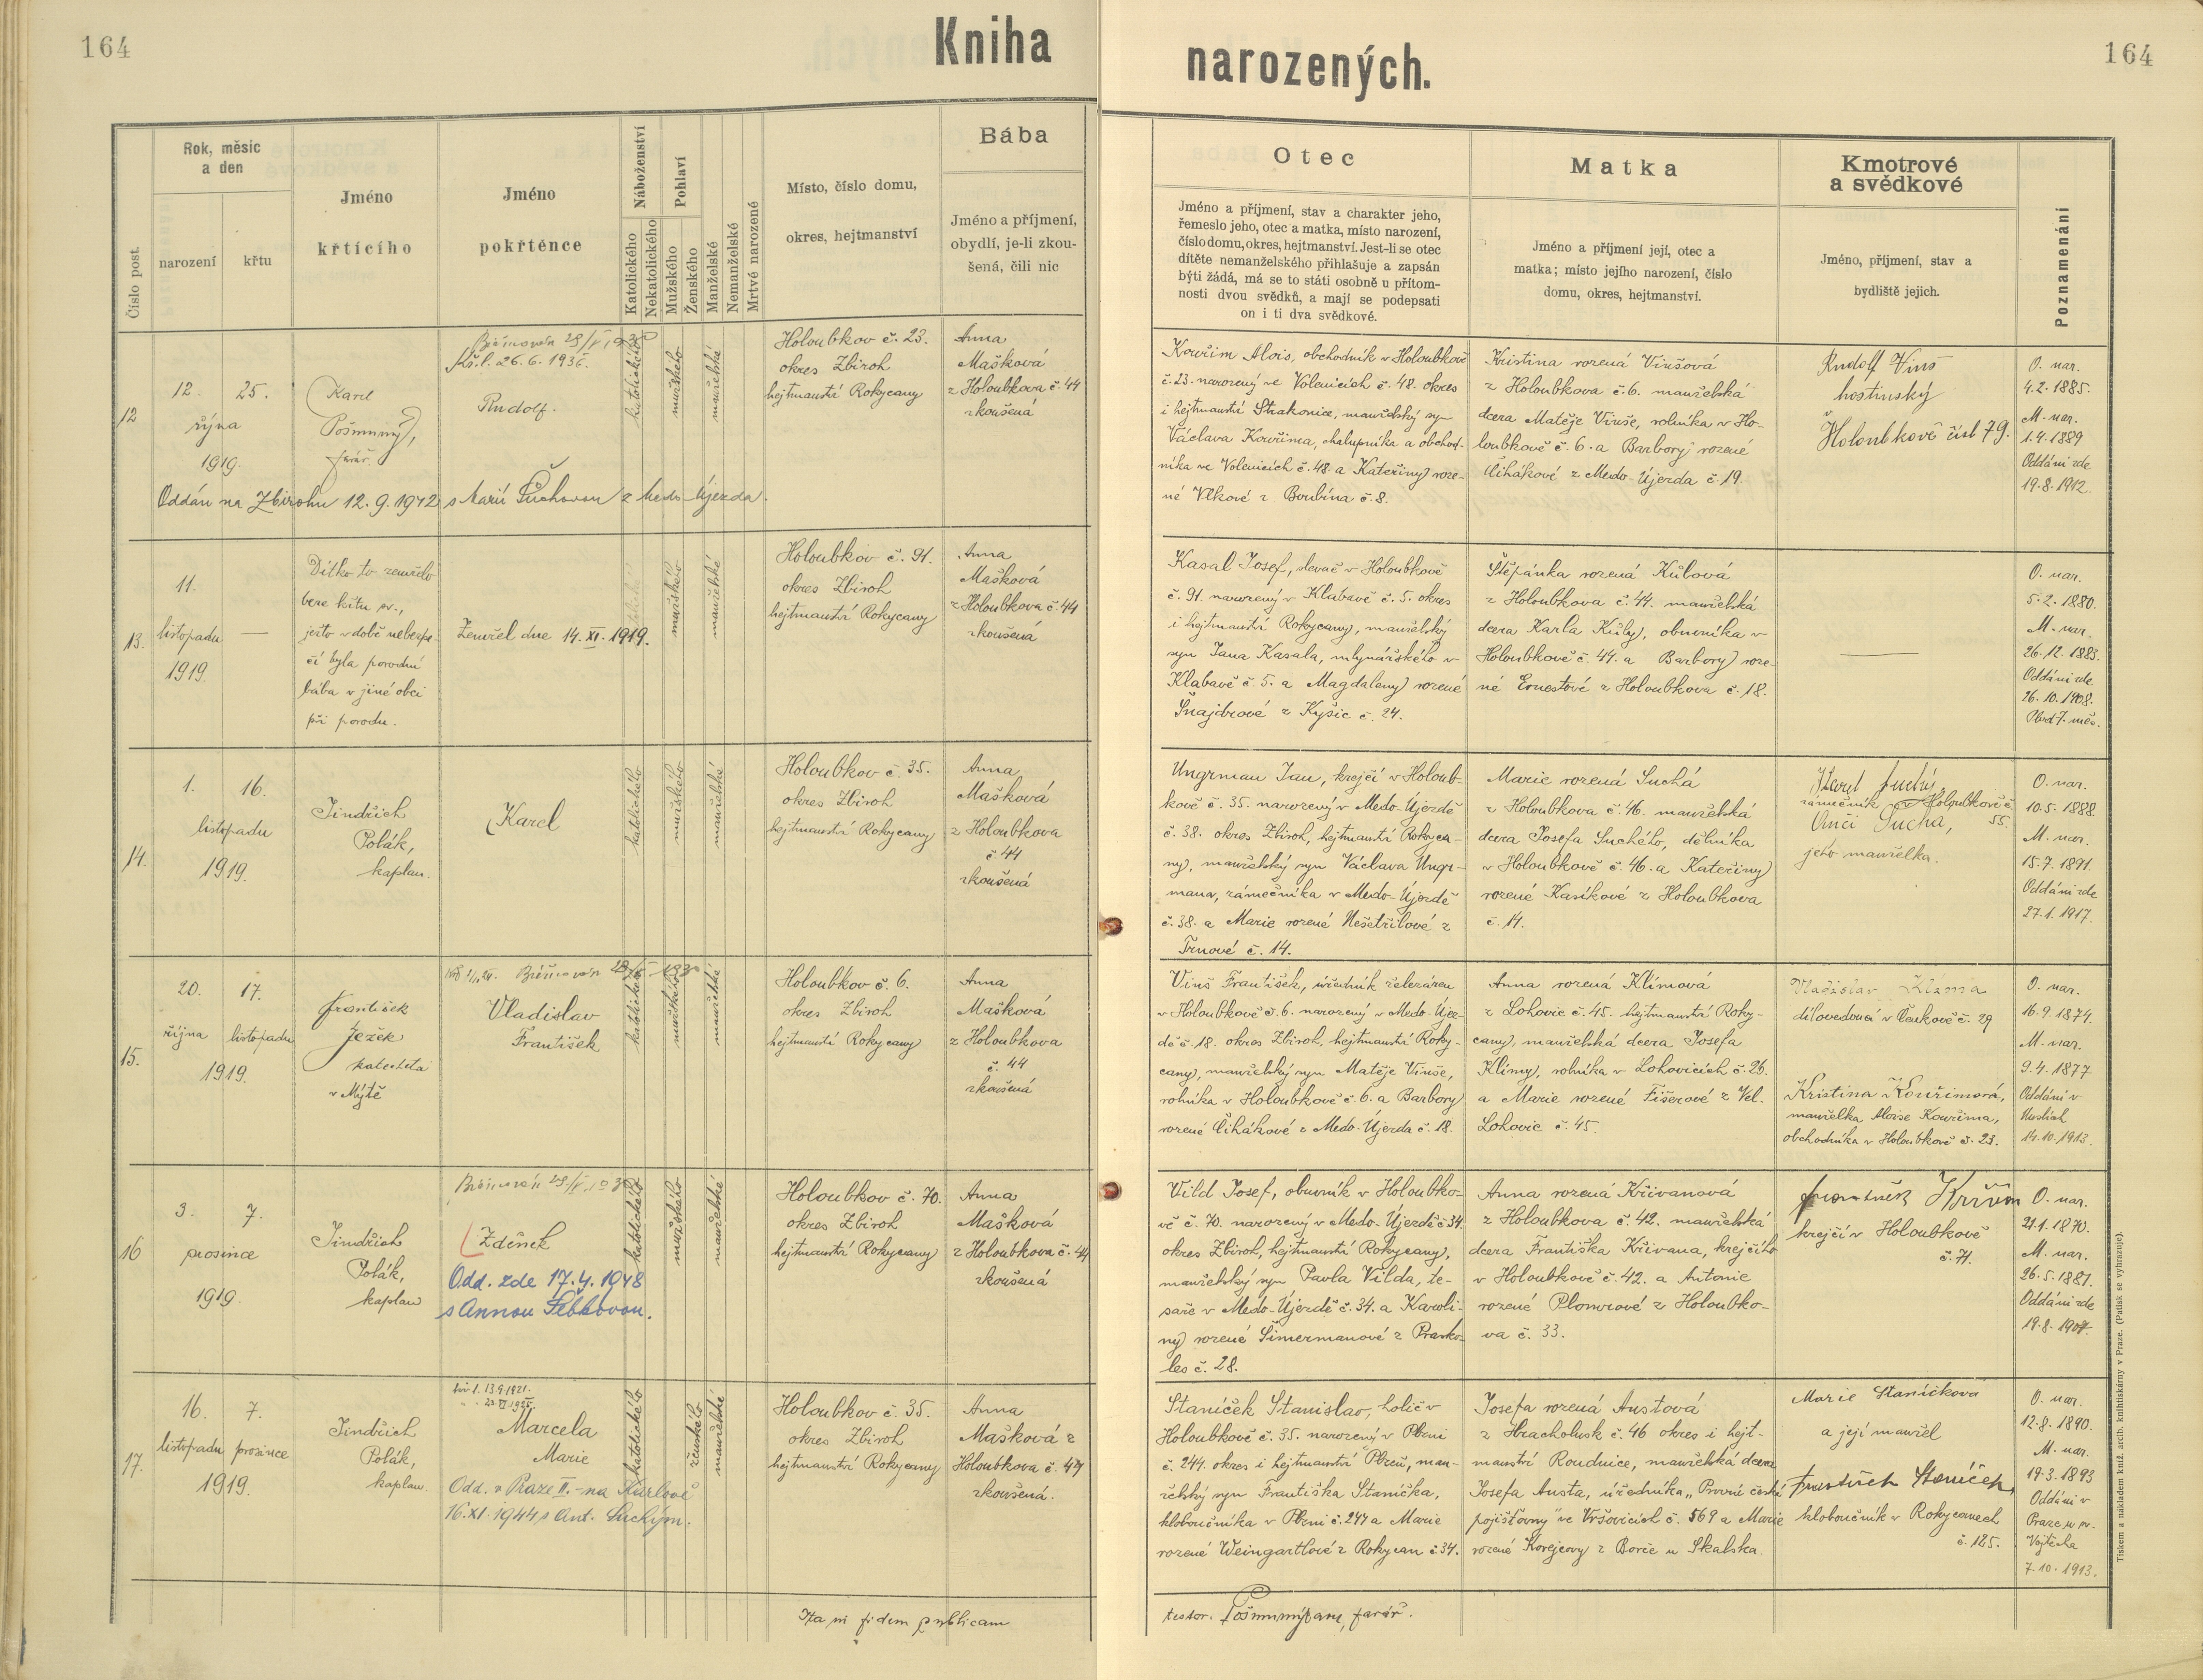 164
Kniha
narozených.
164
Číslo post.
Rok, měsíc
a den
narození
křtu
Jméno
křtícího
Jméno
pokřtěnce
Náboženství
Katolického
Nekatolického
Pohlaví
Mužského
Ženského
Manželské
Nemanželské
Mrtvé narozené
Místo, číslo domu,
okres, hejtmanství
Bába
Jméno a příjmení,
obydlí, je-li zkou-
šená, čili nic
Otec
Jméno a příjmení, stav a charakter jeho,
řemeslo jeho, otec a matka, místo narození,
číslo domu, okres, hejtmanství. Jest-li se otec
dítěte nemanželského přihlašuje a zapsán
býti žádá, má se to státi osobně u přítom-
nosti dvou svědků, a mají se podepsati
on i ti dva svědkové.
Matka
Jméno a příjmení její, otec a
matka; místo jejího narození, číslo
domu, okres, hejtmanství.
Kmotrové
a svědkové
Jméno, příjmení, stav a
bydliště jejich.
Poznamenání
12
12. 25.
října
1919.
Karel
Pošmurný,
farář
Biřmován 28/V
Kř. l. 26.6.
Rudolf.
katolického
mužského
manželské
Holoubkov č. 23.
okres Zbiroh
hejtmanství Rokycany
Anna
Mašková
z Holoubkova č. 44
zkoušená
Oddán na Zbirohu 12.9.1942 s Marií Suchovou z Medo-Újezda.
Kouřim Alois, obchodník v Holoubkově
č. 23. narozený ve Volenicích č. 48. okres
i hejtmanství Strakonice, manželský syn
Václava Kouřima, chalupníka a obchod-
níka ve Volenicích č. 48 a Kateřiny roze-
né Vlkové z Boubína č. 8.
Kristina rozená Vinšová
z Holoubkova č. 6. manželská
dcera Matěje Vinše, rolníka v Ho-
loubkově č. 6. a Barbory rozené
Čihákové z Medo-Újezda č. 19.
Rudolf Vinš
hostinský
v
Holoubkově čísl 79.
O. nar.
4.2.1885.
M. nar.
1.4.1889
Oddáni zde
19.8.1912.
13.
11.
listopadu —
1919.
Dítko to zemřelo
beze křtu sv.,
ješto v době nebezpe-
čí byla porodní
bába v jiné obci
při porodu.
Zemřel dne 14. XI. 1919.
mužského
manželské
Holoubkov č. 91.
okres Zbiroh
hejtmanství Rokycany
Anna
Mašková
z Holoubkova č. 44
zkoušená
Kasal Josef, slevač v Holoubkově
č. 91. narozený v Klabavě č. 5. okres
i hejtmanství Rokycany, manželský
syn Jana Kasala, mlynářského v
Klabavě č. 5. a Magdaleny rozené
Šnajdrové z Kyšic č. 24.
Štěpánka rozená Kůlová
z Holoubkova č. 44. manželská
dcera Karla Kůly, obuvníka v
Holoubkově č. 44. a Barbory roze-
né Ernestové z Holoubkova č. 18.
O. nar.
5.2.1880.
M. nar.
26.12.1885.
Oddáni zde
26.10.1908.
Plod 7. měs.
14.
1. 16.
listopadu
1919.
Jindřich
Polák,
kaplan.
Karel
katolického
mužského
manželské
Holoubkov č. 35.
okres Zbiroh
hejtmanství Rokycany
Anna
Mašková
z Holoubkova
č. 44
zkoušená
Ungrman Jan, krejčí v Holoub-
kově č. 35. narozený v Medo-Újezdě
č. 38. okres Zbiroh, hejtmanství Rokyca-
ny, manželský syn Václava Ungr-
mana, zámečníka v Medo-Újezdě
č. 38. a Marie rozené Nešetřilové z
Trnové č. 14.
Marie rozená Suchá
z Holoubkova č. 46. manželská
dcera Josefa Suchého, dělníka
v Holoubkově č. 46. a Kateřiny
rozené Kasíkové z Holoubkova
č. 14.
Karel Suchý,
zámečník v Holoubkově č.
55.
Suchá,
jeho manželka.
O. nar.
10.5.1888.
M. nar.
15.7.1891.
Oddáni zde
27.1.1917.
15.
20. 17.
října listopadu
1919.
František
Ježek
katecheta
v Mýtě
Biřmován 28/5 1930
Vladislav
František
katolického
mužského
manželské
Holoubkov č. 6.
okres Zbiroh
hejtmanství Rokycany
Anna
Mašková
z Holoubkova
č. 44
zkoušená
Vinš František, úředník železáren
v Holoubkově č. 6. narozený v Medo-Újez-
dě č. 18. okres Zbiroh, hejtmanství Roky-
cany, manželský syn Matěje Vinše,
rolníka v Holoubkově č. 6. a Barbory
rozené Čihákové z Medo-Újezda č. 18.
Anna rozená Klímová
z Lohovic č. 45. hejtmanství Roky-
cany, manželská dcera Josefa
Klímy, rolníka v Lohovicích č. 26.
a Marie rozené Fišerové z Vel.
Lohovic č. 45.
Vladislav Klíma
dílovedoucí v Čenkově č. 29
Kristina Kouřimová,
manželka Aloise Kouřima,
obchodníka v Holoubkově č. 23.
O. nar.
16.9.1874.
M. nar.
9.4.1877
Oddáni v
14.10.1913.
16
3. 7.
prosince
1919.
Jindřich
Polák,
kaplan
Biřmován 28/V.1930
Zdeněk
Odd. zde 17.4.1948
s Annou Šebkovou.
katolického
mužského
manželské
Holoubkov č. 70.
okres Zbiroh
hejtmanství Rokycany
Anna
Mašková
z Holoubkova č. 44
zkoušená
Vild Josef, obuvník v Holoubko-
vě č. 70. narozený v Medo-Újezdě č 34.
okres Zbiroh, hejtmanství Rokycany,
manželský syn Pavla Vilda, te-
saře v Medo-Újezdě č. 34. a Karoli-
ny rozené Šimermanové z Prasko-
les č. 28.
Anna rozená Křivanová
z Holoubkova č. 42. manželská
dcera Františka Křivana, krejčího
v Holoubkově č. 42. a Antonie
rozené Plomrové z Holoubko-
va č. 33.
František Křivan
krejčí v Holoubkově
č. 71.
O. nar.
21.1.1870.
M. nar.
26.5.1881.
Oddáni zde
19.8.1907.
17.
16. 7.
listopadu prosince
1919.
Jindřich
Polák,
kaplan
13.9.1921.
Marcela
Marie
Odd. v Praze II.-na Karlově
16.XI.1944 s Ant. Suchým.
katolického
ženského
manželské
Holoubkov č. 35.
okres Zbiroh
hejtmanství Rokycany
Anna
Mašková z
Holoubkova č. 44
zkoušená.
Staníček Stanislav, holič v
Holoubkově č. 35. narozený v Plzni
č. 244. okres i hejtmanství Plzeň, man-
želský syn Františka Staníčka,
kloboučníka v Plzni č. 244 a Marie
rozené Weingartlové z Rokycan č 34.
Josefa rozená Austová
z Hracholusk č. 46 okres i hejt-
manství Roudnice, manželská dcera
Josefa Austa, úředníka „První české
pojišťovny" ve Vršovicích č. 569 a Marie
rozené Korejcovy z Borče u Skalska.
Marie Staníčkova
a její manžel
František Staníček,
kloboučník v Rokycanech
č. 125.
O. nar.
12.8.1890.
M. nar.
19.3.1893
Oddáni v
Praze u sv.
Vojtěcha
7.10.1913.
Ita in fidem publicam
testor. Pošmurný farář.
Tiskem a nákladem kníž. arcib. knihtiskárny v Praze. (Patisk se vyhrazuje).